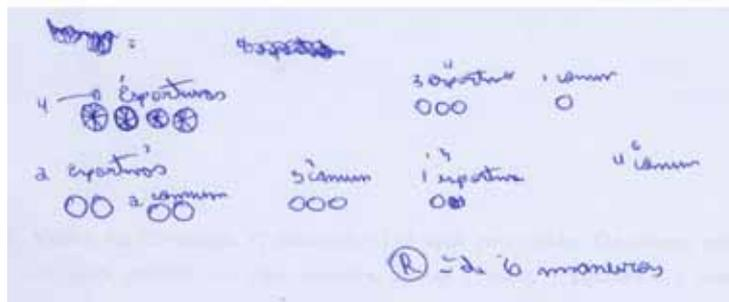 4 esportivos
3 esportivo 1 comum
2 esportivos 2 comum
3 comum 1 esportivo
4 comum
R = de 6 maneiras